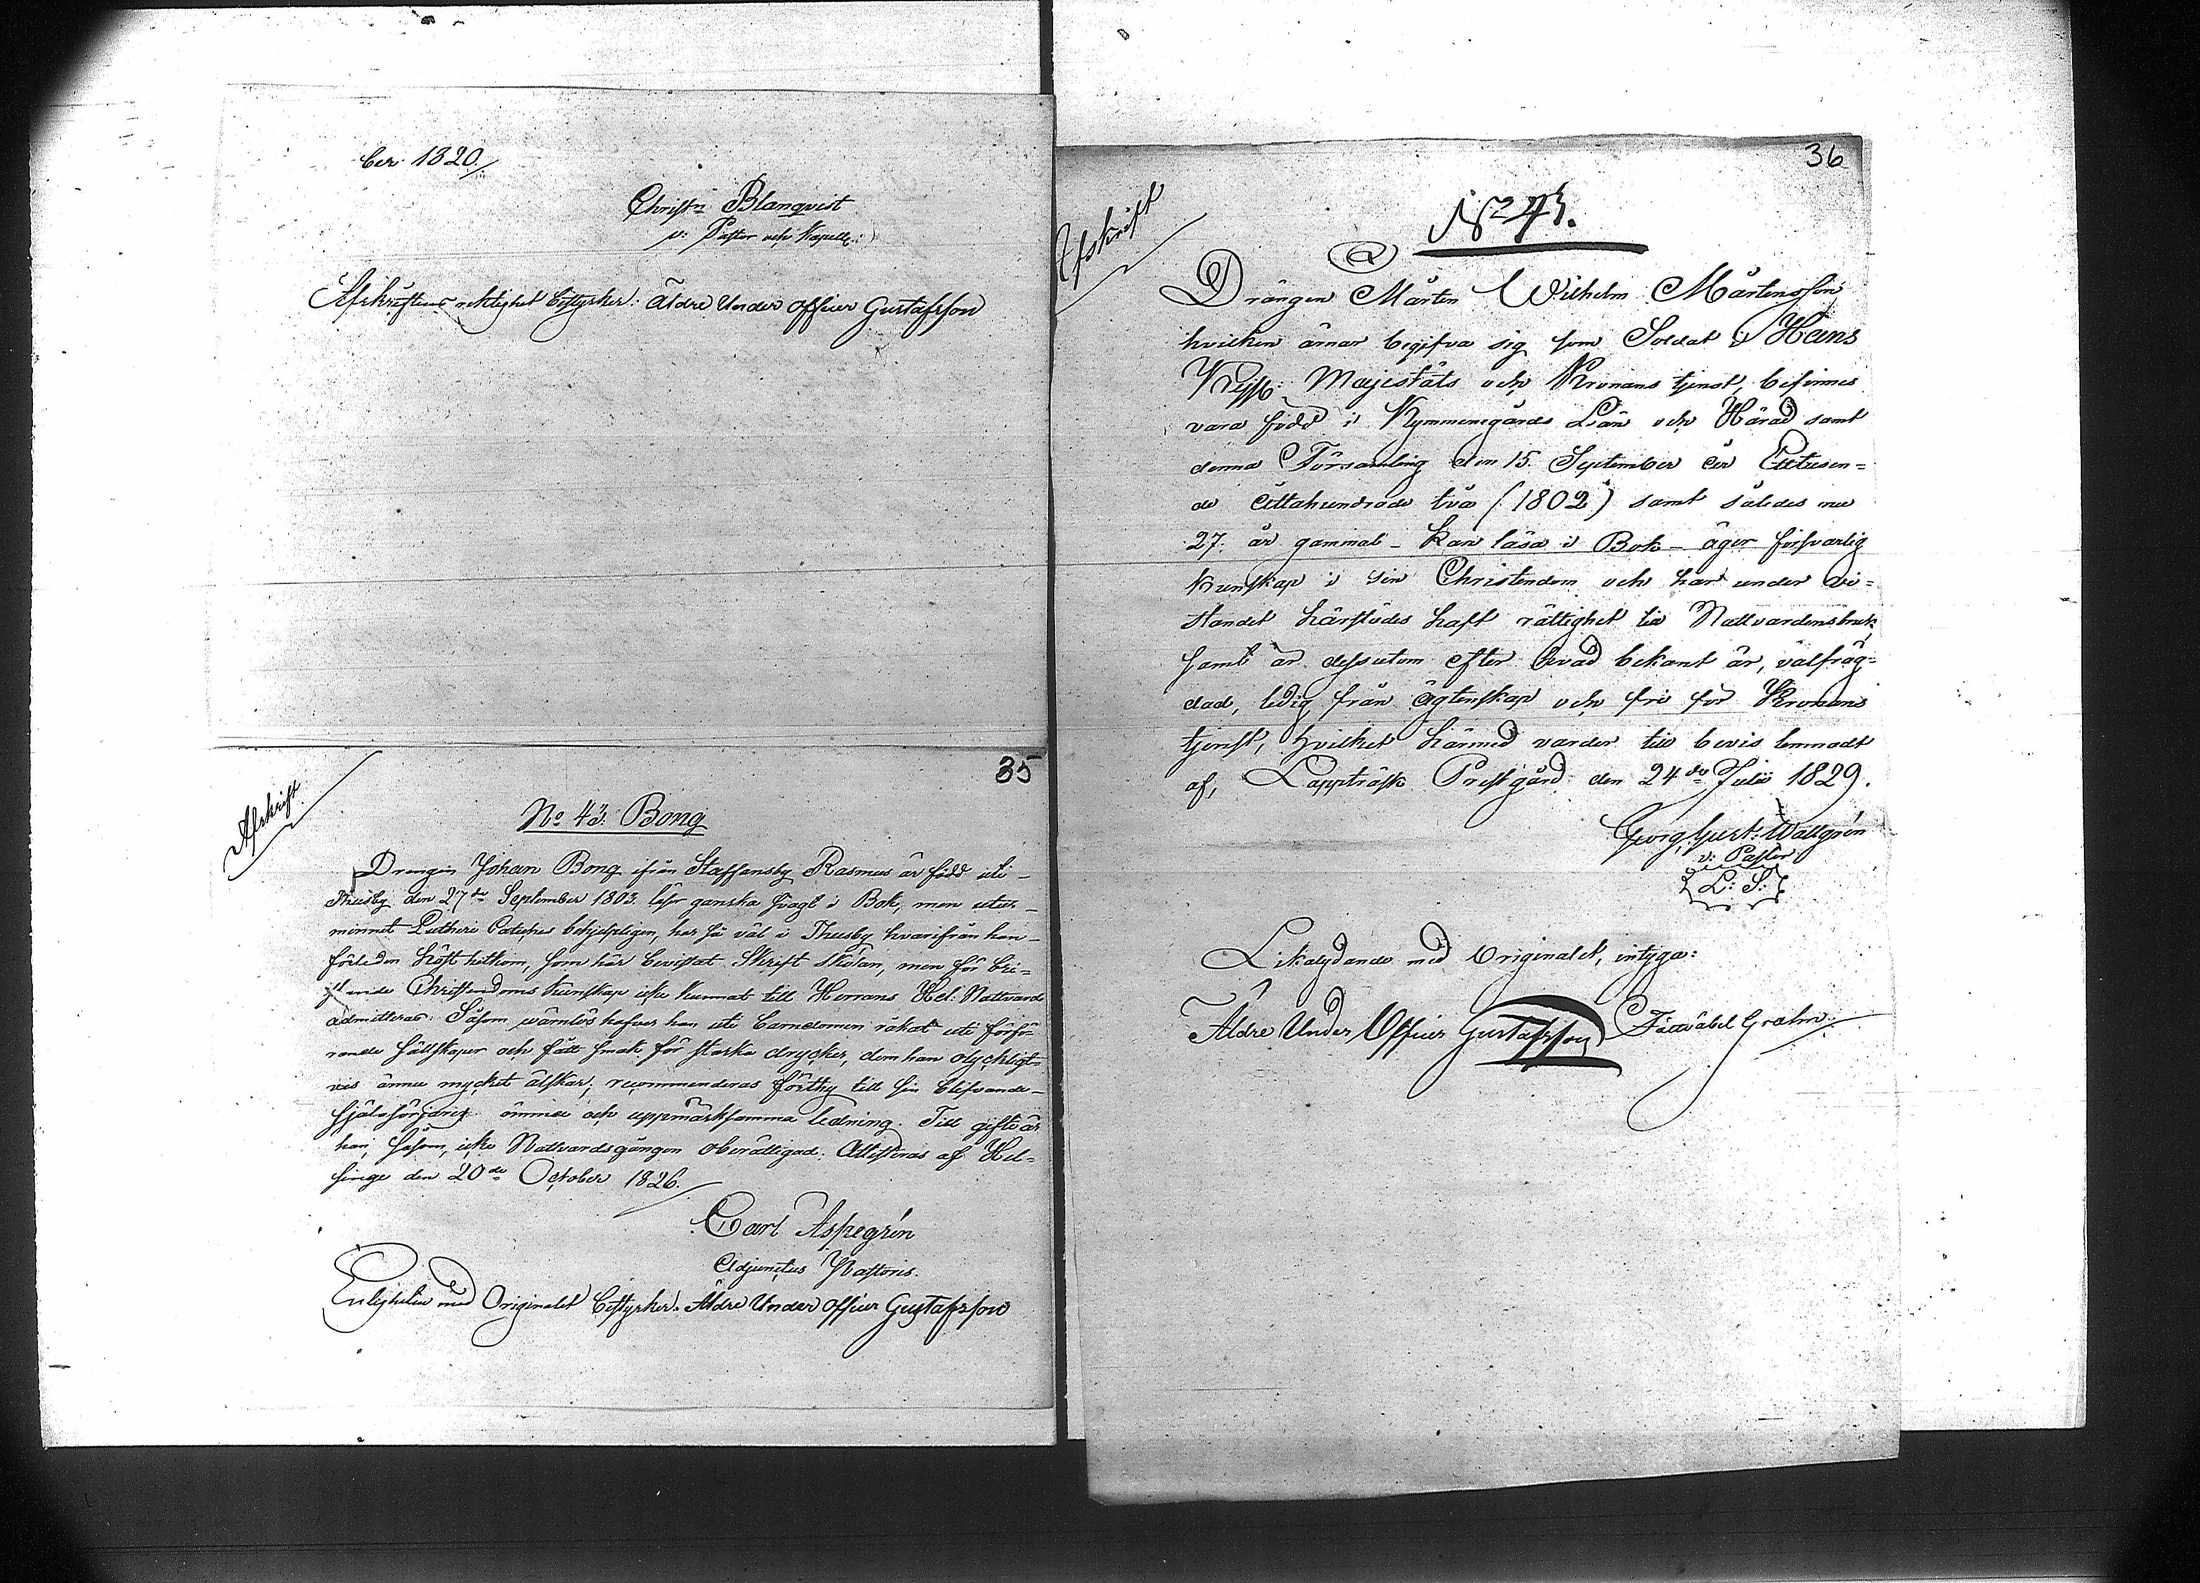 ber 1820.
Christn Blanqvist
v: Pastor och Kapell:
Afskriftens riktighet bestyrker: Äldre Under Officer Gustafsson
35
Afskrift
No 43. Bong
Drengen Johan Bong ifrån Staffansby Rasmus är född uti
Thusby den 27de September 1803. läser ganska svagt i Bok, men utur
minnet Lutheri Cateches behjelpligen, har så väl i Thusby hvarifrån han
förleden höst hitkom, som här bevistat Skrift skolan, men för bri-
stande Christendoms kunskap icke kunnat till Herrans Hel. Nattvard
admitteras. Såsom wärnlös hafver han uti barndomen råkat uti förfö-
rande sällskaper och fått smak för starka drycker, dem han olyckligt-
vis ännu mycket älskar; recommenderas förthy till sin blifvande
själasörjares ömma och uppmärksamma ledning. Till gifte är
han, såsom icke Nattvardsgången oberättigad. Attesteras af Hel-
singe den 20de October 1826.
Carl Aspegrén
Adjunctus Pastoris.
Enligheten med Originalet bestyrker. Äldre Under Officer Gustafsson
36
Afskrift
No 43.
Drängen Mårten Wilhelm Mårtensson
hvilken ärnar begifva sig som Soldat i Hans
Kejss: Majestäts och Kronans tjenst, befinnes
vara född i Kymmenegårds Län och Härad samt
denna Församling den 15. September år Ettusen-
de åttahundrade två (1802) samt således nu
27. år gammal - kan läsa i Bok - äger försvarlig
kunskap i sin Christendom och har under vi-
standet härstädes haft rättighet till Nattvardens bruk
samt är dessutom efter hvad bekant är, välfräg-
dad, ledig från ägtenskap och fri för Kronans
tjenst, hvilket härmed varder till bevis lemnadt
af, Lappträsk Prestgård den 24de Julii 1829.
Georg Gust: Wallgrén
v: Pastor
L: S:
Likalydande med Originalet, intyga:
Äldre Under Officer Gustafsson Grahn.